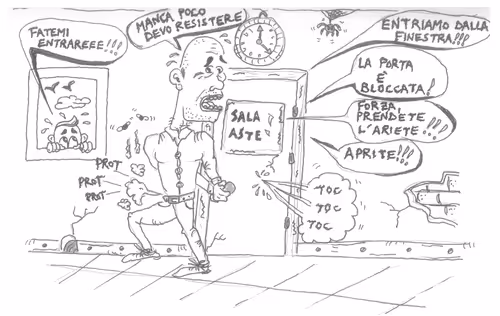 FATEMI
ENTRAREEE!!!
MANCA POCO
DEVO RESISTERE
ENTRIAMO DALLA
FINESTRA!!!
LA PORTA
È
BLOCCATA!
FORZA,
PRENDETE
L'ARIETE!!!
APRITE!!!
SALA
ASTE
PROT
PROT
PROT
TOC
TOC
TOC